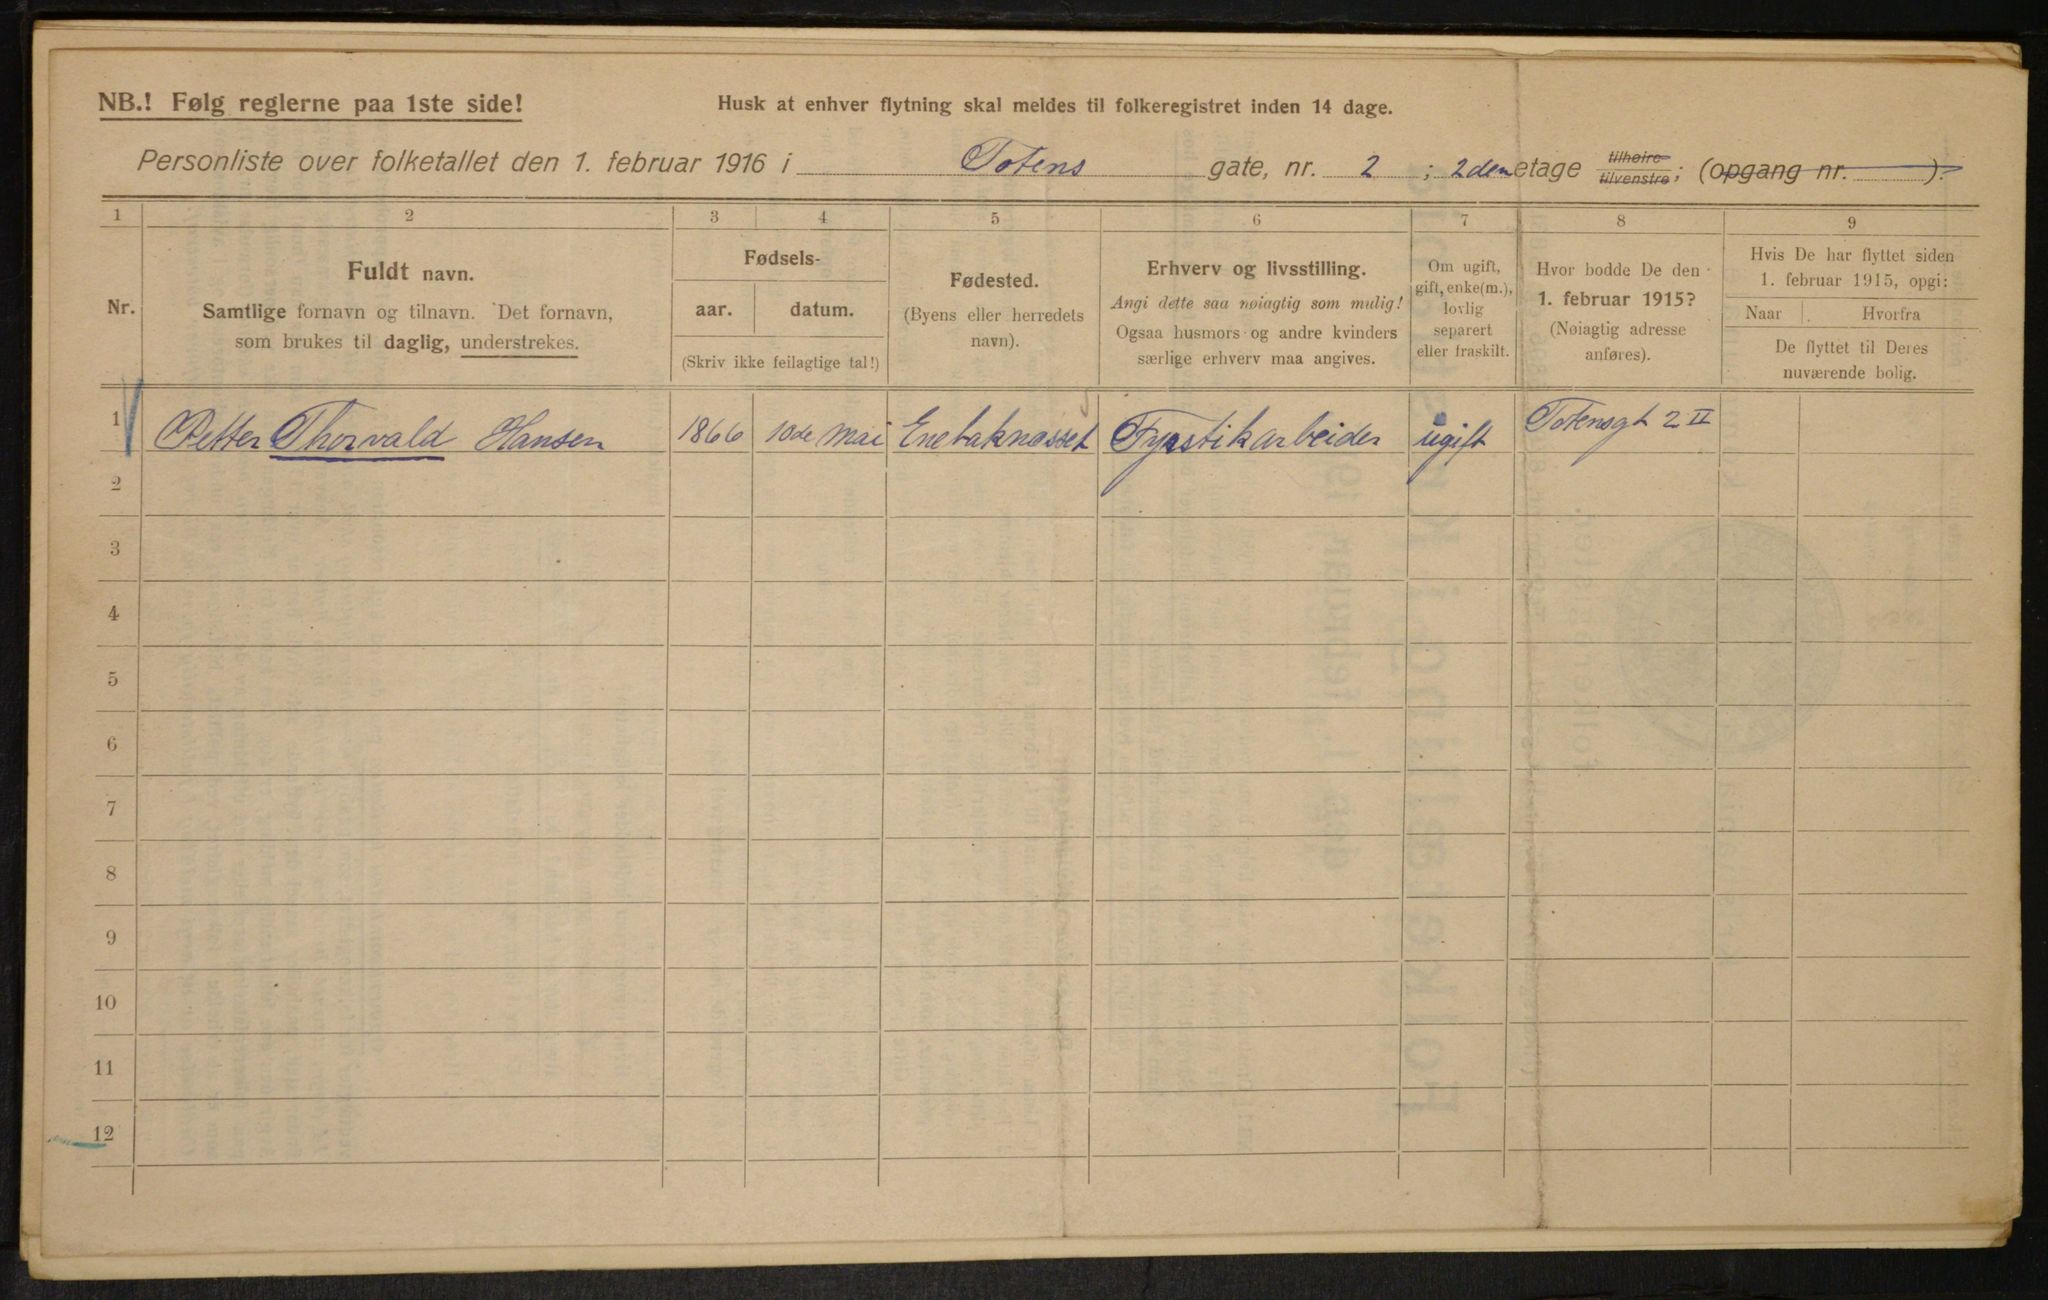 NB.! Følg reglerne paa 1ste side!
Husk at enhver flytning skal meldes til folkeregistret inden 14 dage.
Personliste over folketallet den 1. februar 1916 i Totens gate, nr. 2 ; 2den etage tilhøire tilvenstre ; (opgang nr. ).
1 2 3 4 5 6 7 8 9
Nr.
Fuldt navn.
Samtlige fornavn og tilnavn. Det fornavn,
som brukes til daglig, understrekes.
Fødsels-
aar. datum.
(Skriv ikke feilagtige tal!)
Fødested.
(Byens eller herredets
navn).
Erhverv og livsstilling.
Angi dette saa nøiagtig som mulig!
Ogsaa husmors og andre kvinders
særlige erhverv maa angives.
Om ugift,
gift, enke(m.),
lovlig
separert
eller fraskilt.
Hvor bodde De den
1. februar 1915?
(Nøiagtig adresse
anføres).
Hvis De har flyttet siden
1. februar 1915, opgi:
Naar Hvorfra
De flyttet til Deres
nuværende bolig.
1 Petter Thorvald Hansen 1866 10de mai Enebaknæsset Fyrstikarbeider ugift Totensgt 2 II
2
3
4
5
6
7
8
9
10
11
12